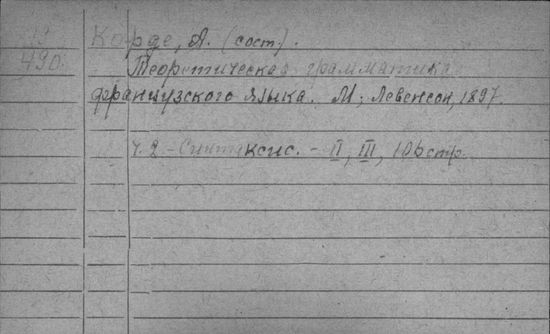 19
490.
Корде, А. (сост.).
Теоретическая грамматика
французского языка. М; Левенсон, 1897.
Ч. 2 - Синтаксис. - II, III, 106 стр.